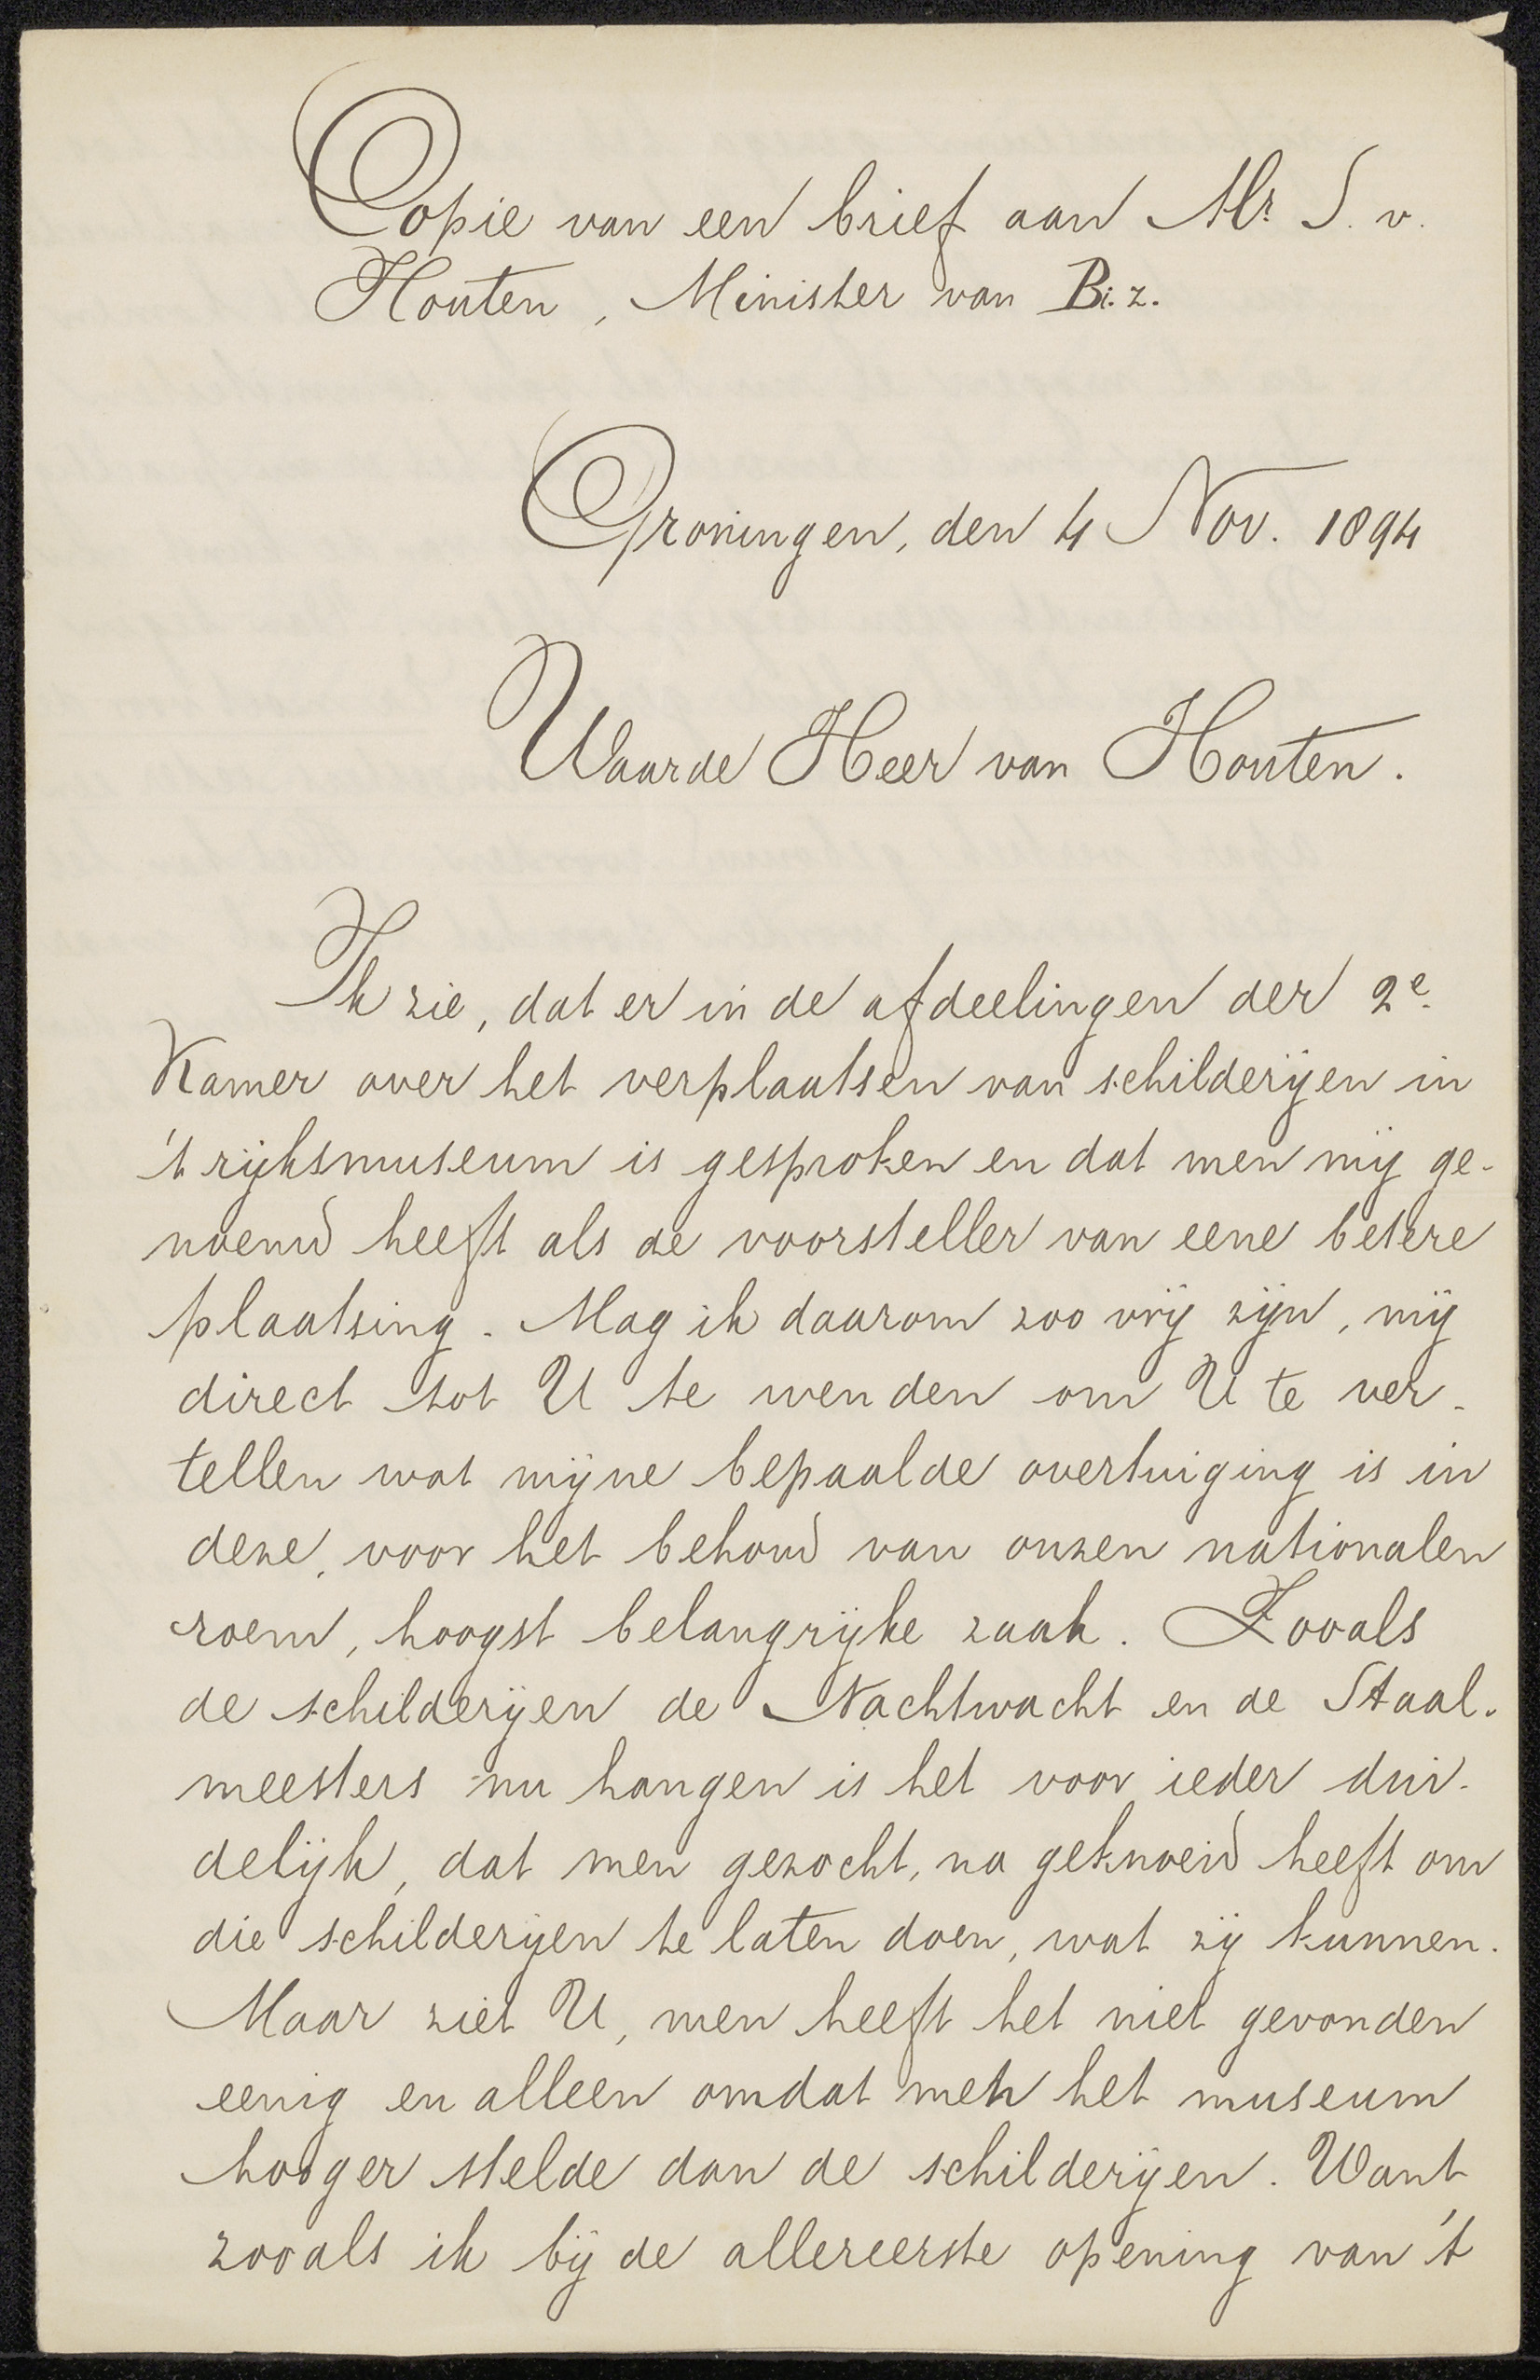 Copie van een brief aan Mr. S. v.
Houten, Minister van Bi. z.
Groningen, den 4 Nov. 1894
Waarde Heer van Houten.
Ik zie, dat er in de afdeelingen der 2e
Kamer over het verplaatsen van schilderijen in
't rijksmuseum is gesproken en dat men mij ge-
noemd heeft als de voorsteller van eene betere
plaatsing. Mag ik daarom zoo vrij zijn, mij
direct tot U te wenden om U te ver-
tellen wat mijne bepaalde overtuiging is in
deze, voor het behoud van onzen nationalen
roem, hoogst belangrijke zaak. Zooals
de schilderijen de Nachtwacht en de Staal-
meesters nu hangen is het voor ieder dui-
delijk, dat men gezocht, na geknoeid heeft om
die schilderijen te laten doen, wat zij kunnen.
Maar ziet U, men heeft het niet gevonden
eenig en alleen omdat men het museum
hooger stelde dan de schilderijen. Want
zooals ik bij de allereerste opening van 't